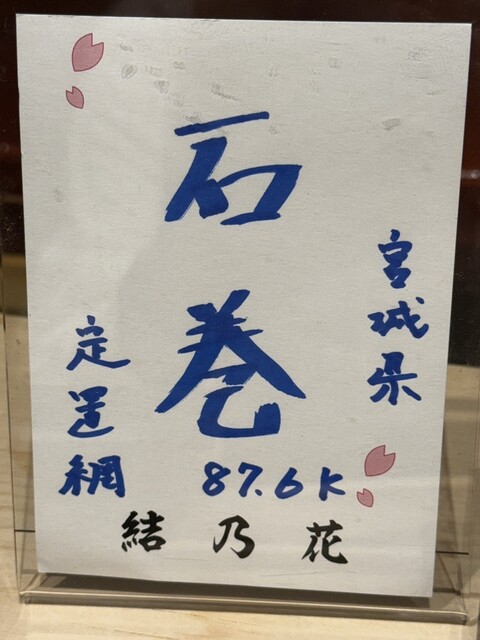 宮城県
石巻
定置網
87.6K
結乃花